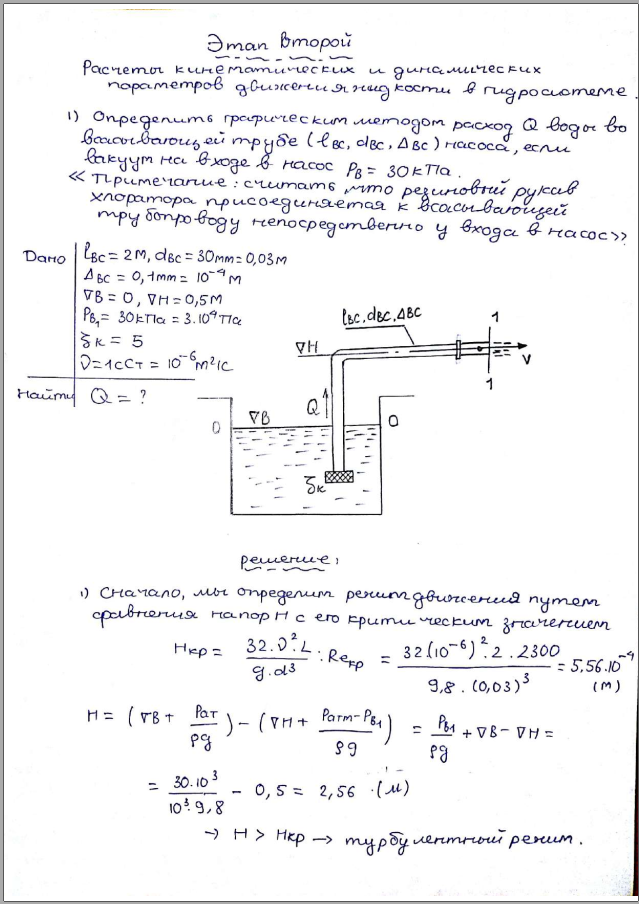 Этап Второй
Расчеты кинематических и динамических
параметров движения жидкости в гидросистеме.
1) Определить графическим методом расход Q воды во
всасывающей трубе (lBC, dBC, ΔBC) насоса, если
вакуум на входе в насос PB = 30кПа.
<<Примечание: считать, что резиновый рукав
хлоратора присоединяется к всасывающей
трубопроводу непосредственно у входа в насос>>
Дано
lBC = 2м, dBC = 30мм = 0,03м
ΔBC = 0,1мм = 10⁻⁴м
∇B = 0, ∇H = 0,5м
PB₁ = 30кПа = 3.10⁴Па
ξк = 5
ν = 1сСт = 10⁻⁶м²/с
Найти Q = ?
lBC, dBC, ΔBC
1
∇H
V
1
Q
∇B
0
0
ξк
Решение:
1) Сначало, мы определим режим движения путем
сравнения напор H с его критическим значением
Hкр = 32.ν².L / g.d³ : Reкр = 32(10⁻⁶)².2.2300 / 9,8.(0,03)³ = 5,56.10⁻⁴ (м)
H = (∇B + Pат / ρg) - (∇H + Pатм-PB₁ / ρg) = PB₁ / ρg + ∇B - ∇H =
= 30.10³ / 10³.9,8 - 0,5 = 2,56 (м)
→ H > Hкр → турбулентный режим.